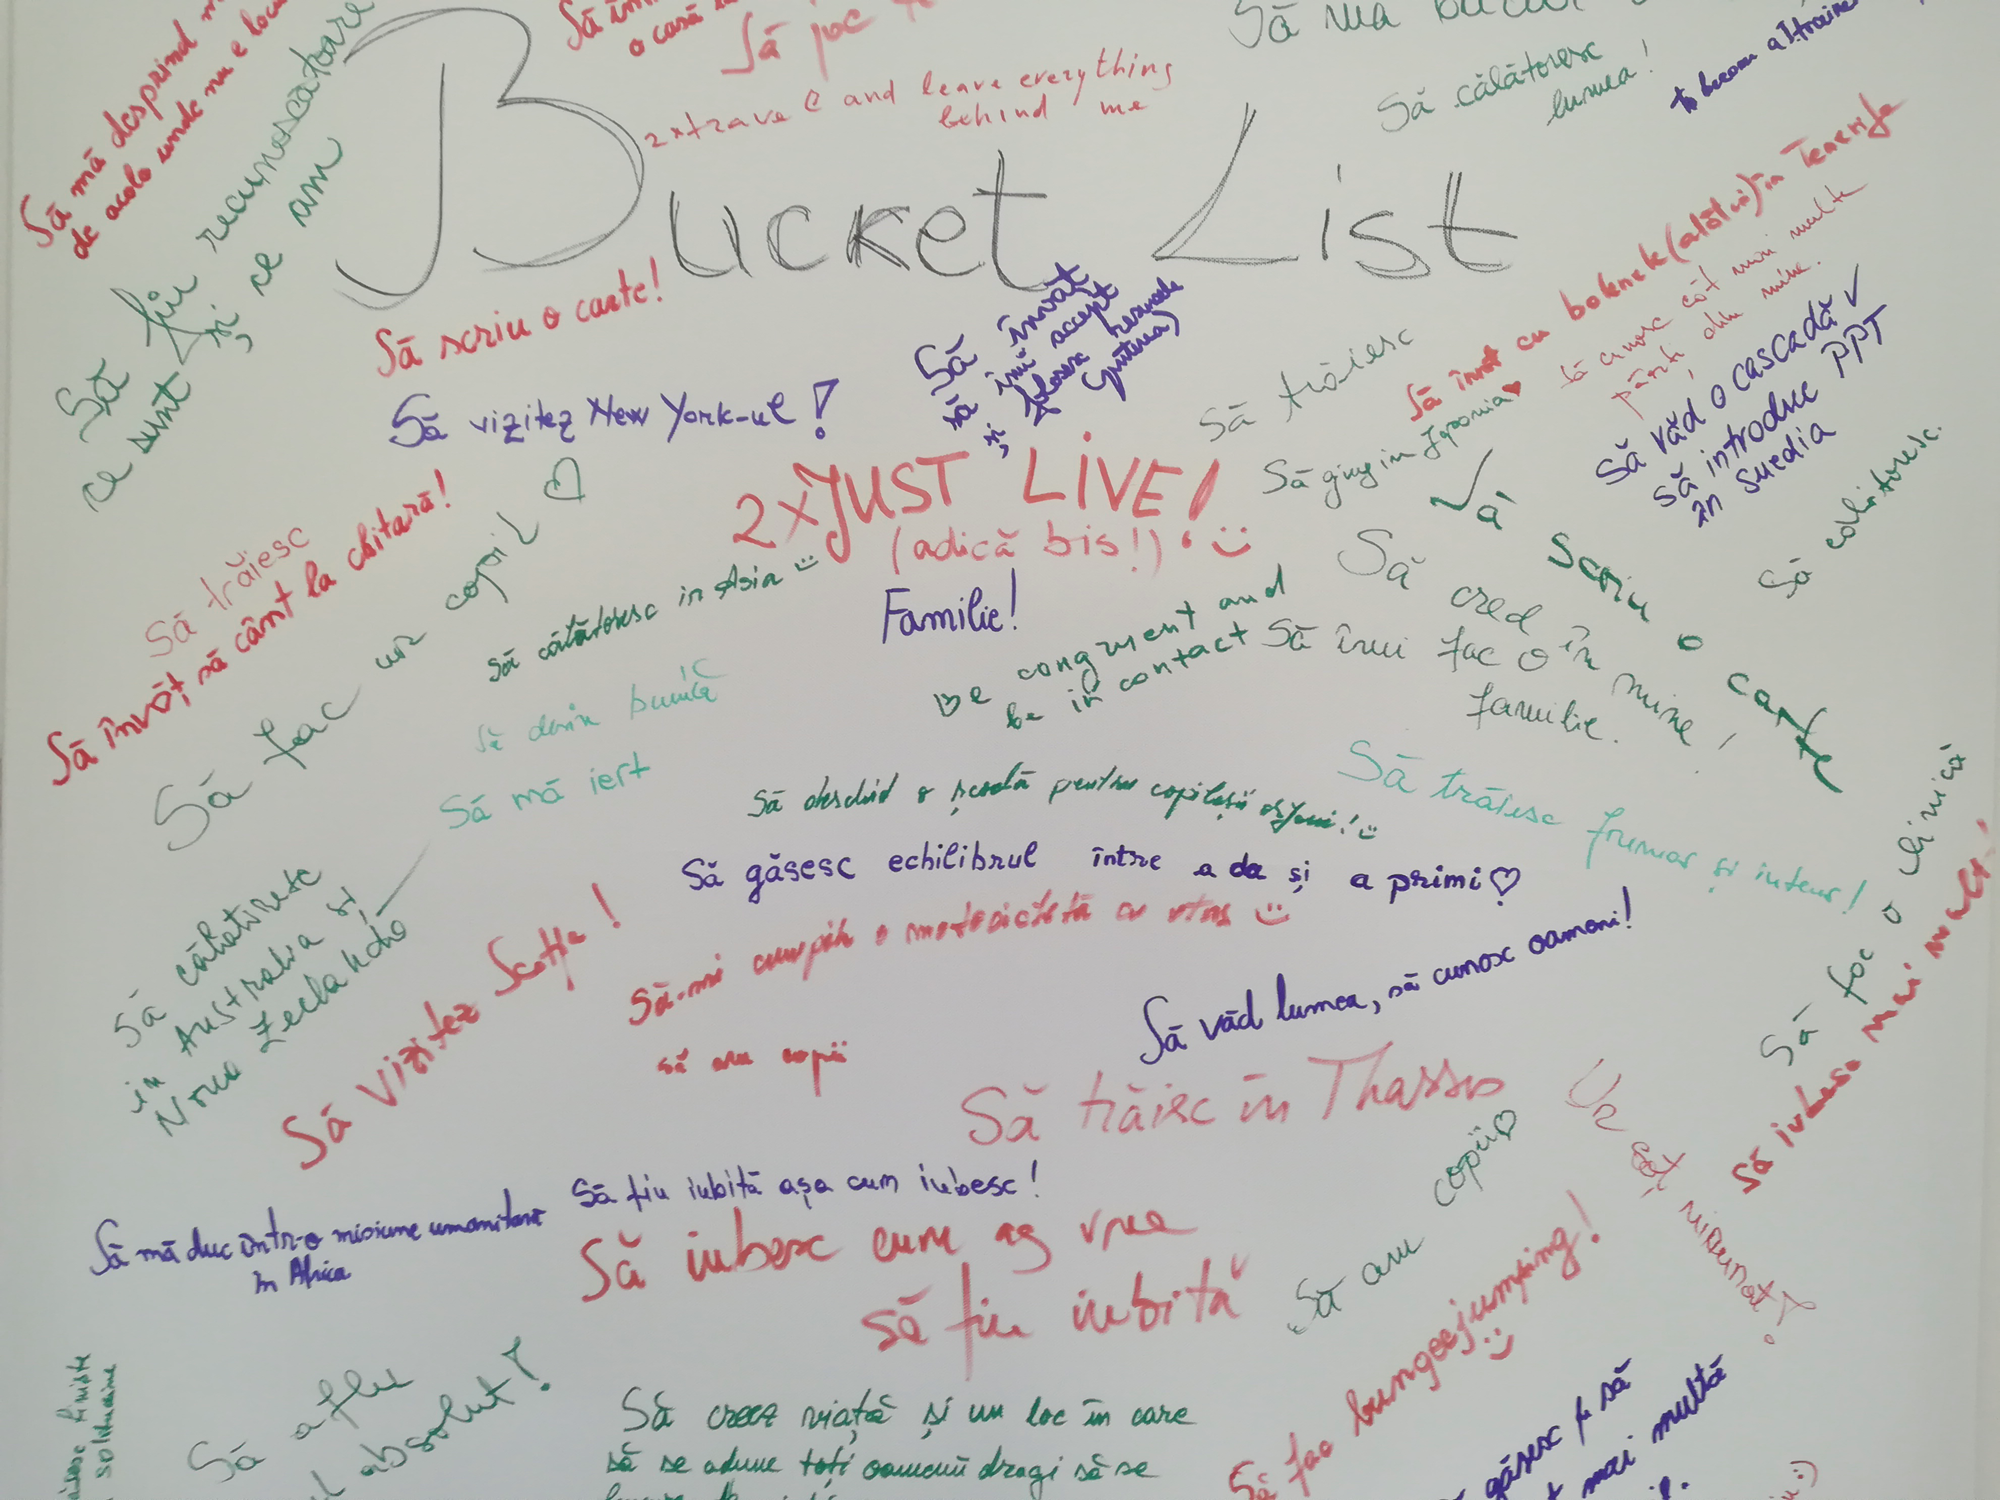 Să mă desprind
de acolo unde nu e
Să fiu recunoscătoare
ce sunt și ce am
o casă
Să joc
2x travel and leave everything
behind me
Să mă bucur
Să călătoresc
lumea!
to become a
Bucket List
Să scriu o carte!
Să vizitez New York-ul!
Să învăț
să îmi accept
și
Să trăiesc
Să înot cu (alături) în Tenerife
Să cunosc cât mai multe
părți din mine.
Să ajung în Japonia ♥
Să văd o cascadă ✓
Să introduc PPT
în Suedia
Să călătoresc.
2x JUST LIVE!
(adică bis!) :)
Să scriu o carte
Să cred în mine!
Să îmi fac o
familie.
Familie!
be congruent and
be in contact
Să trăiesc
Să învăț să cânt la chitară!
Să fac un copil ♡
Să călătoresc în Asia :)
Să devin bunică
Să mă iert
Să deschid o școală pentru copilașii! :)
Să trăiesc frumos și intens!
Să găsesc echilibrul între a da și a primi ♡
Să-mi cumpăr o motocicletă cu ataș :)
Să călătoresc
în Australia și
Noua Zeelandă
Să vizitez Scoția!
să am copii
Să văd lumea, să cunosc oameni!
Să fac o clinică
Să iubesc mai mult!
Să trăiesc în Thassos
Să am copii ♡
Un soț minunat
Să mă duc într-o misiune umanitară
în Africa
Să fiu iubită așa cum iubesc!
Să iubesc cum aș vrea
să fiu iubită
Să fac bungeejumping!
:)
Să aflu
absolut!
liniște
solitudine
Să creez viață și un loc în care
să se adune toți oamenii dragi să se
găsesc și să
mai multă